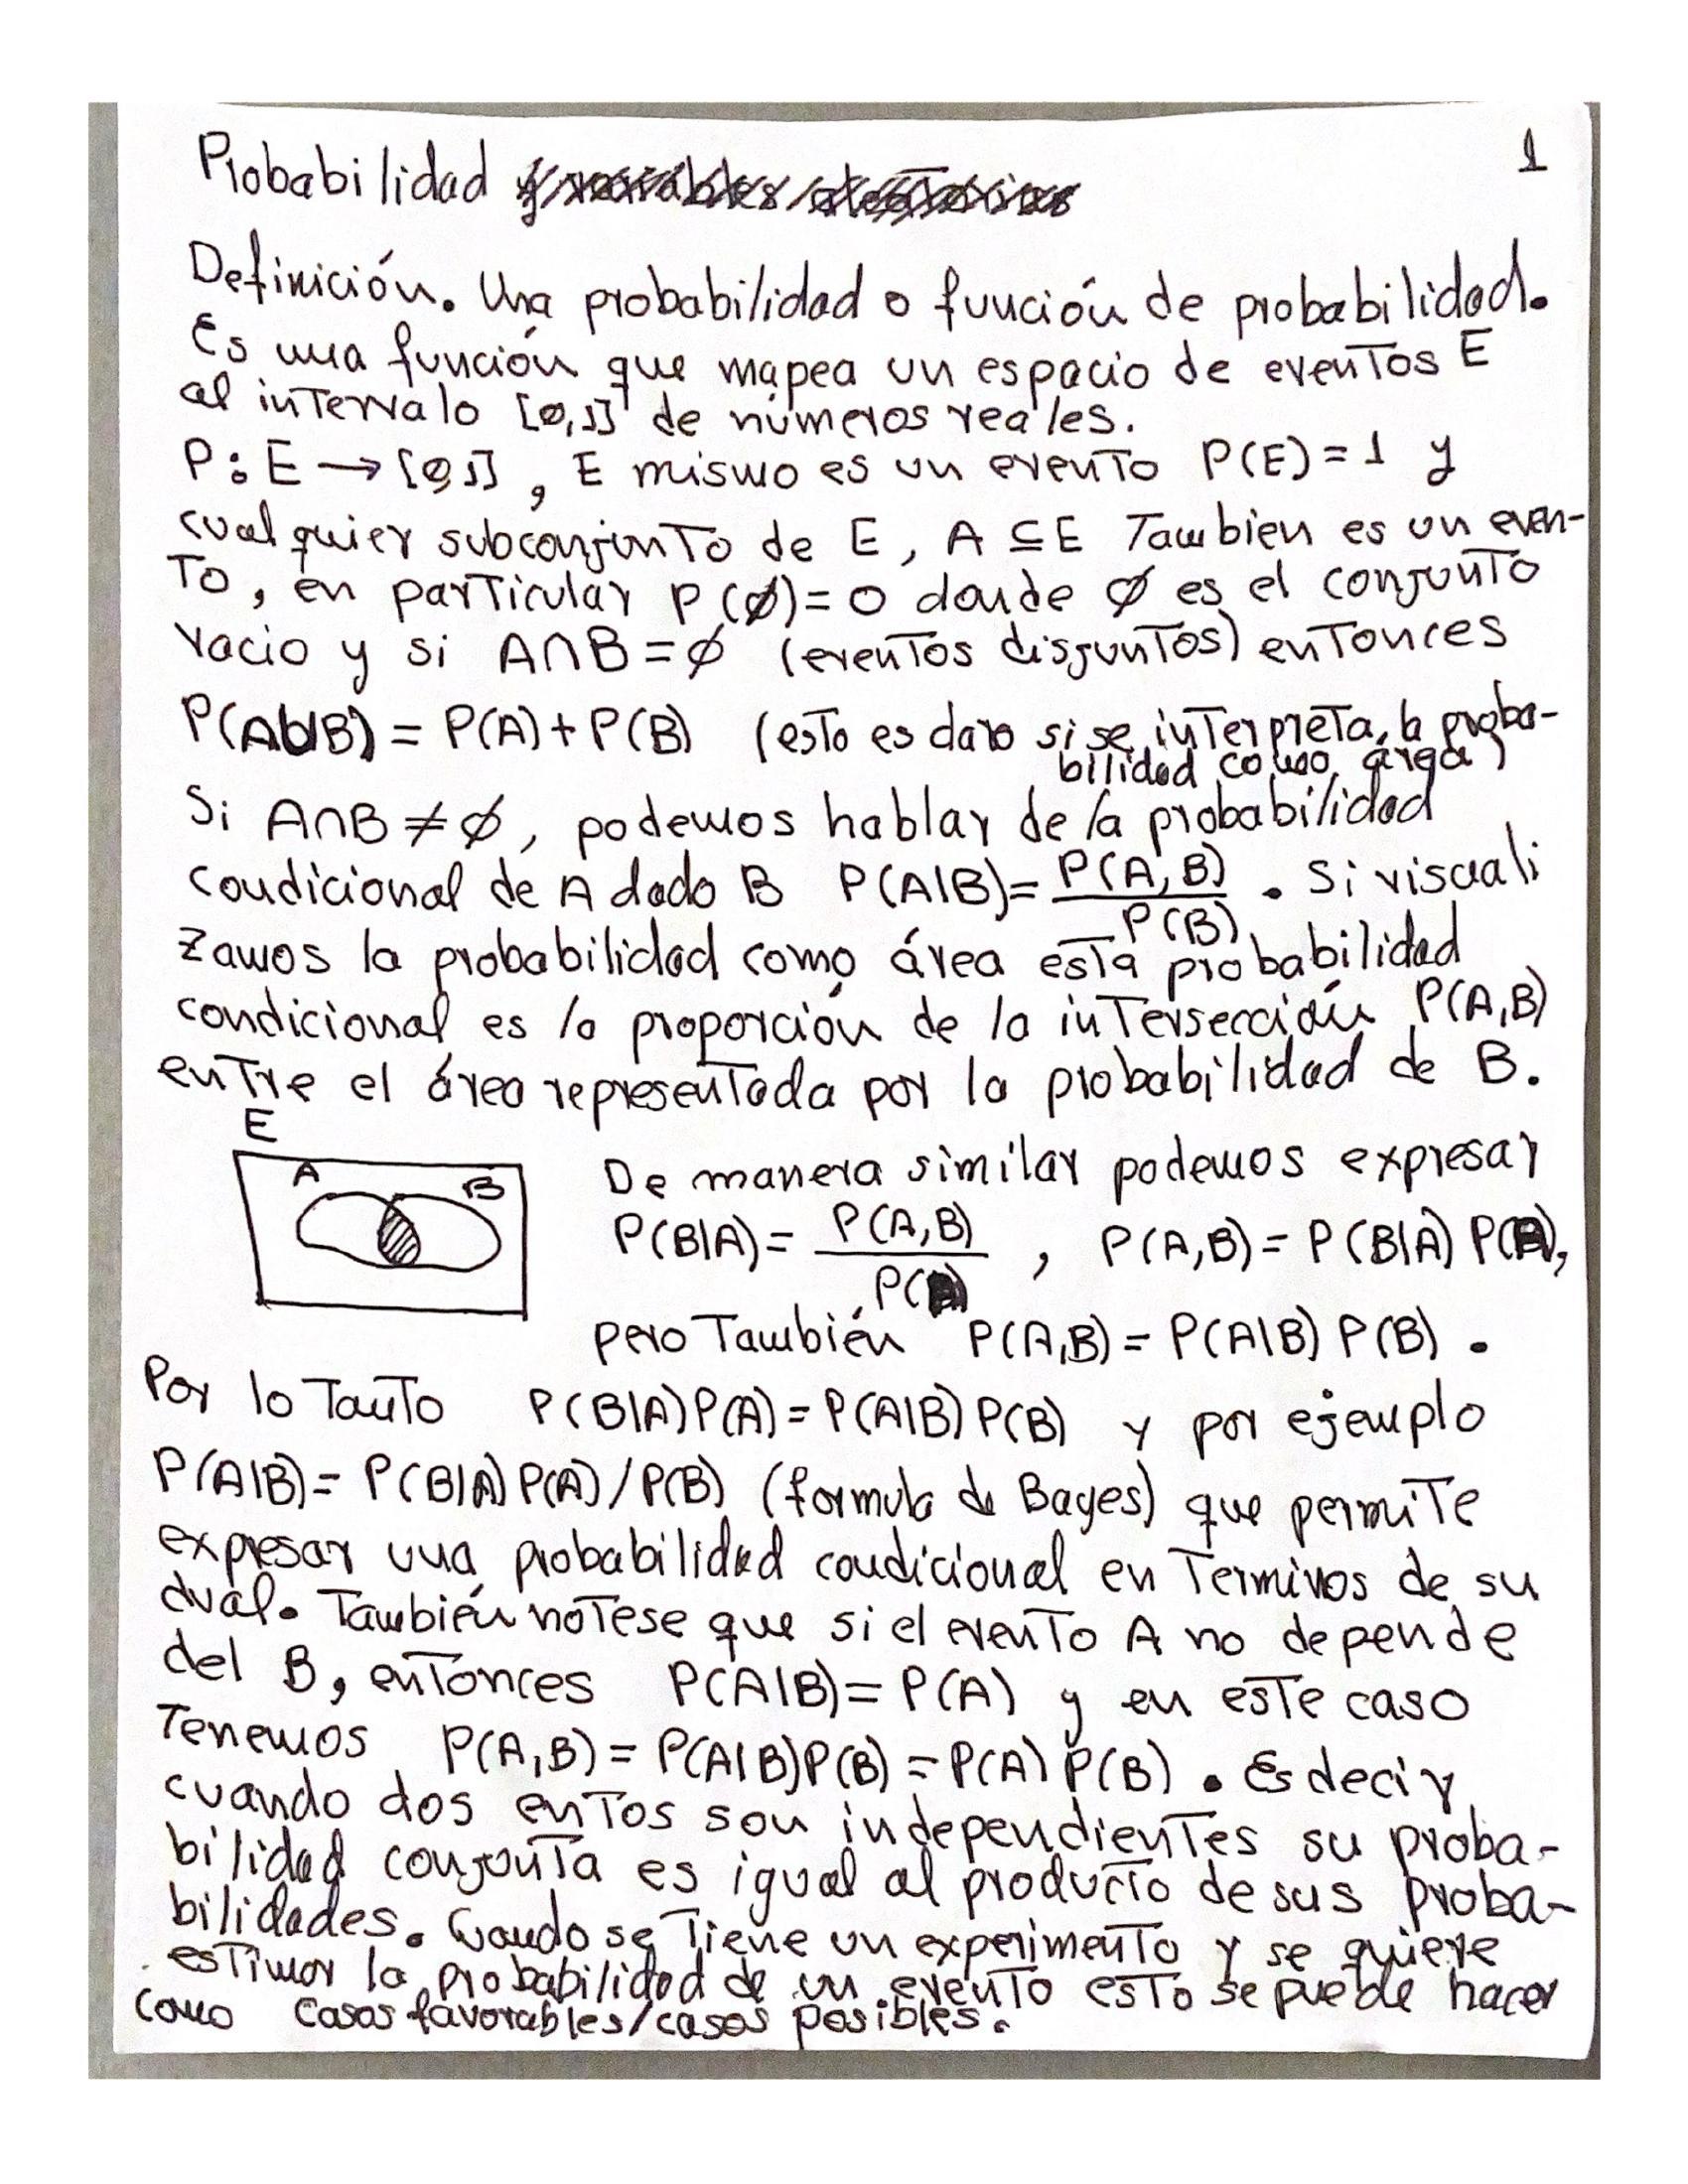 Probabilidad
1
Definición. Una probabilidad o función de probabilidad.
Es una función que mapea un espacio de eventos E
al intervalo [0,1] de números reales.
P: E → [0,1], E mismo es un evento P(E)=1 y
cualquier subconjunto de E, A ⊆ E Tambien es un even-
To, en particular P(∅)=0 donde ∅ es el conjunto
vacio y si A∩B=∅ (eventos disjuntos) entonces
P(A∪B) = P(A)+P(B) (esto es claro si se interpreta la proba-
bilidad como área)
Si A∩B ≠ ∅, podemos hablar de la probabilidad
condicional de A dado B P(A|B)= P(A,B)/P(B). Si visuali
zamos la probabilidad como área esta probabilidad
condicional es la proporción de la intersección P(A,B)
entre el área representada por la probabilidad de B.
E
A B
De manera similar podemos expresar
P(B|A)= P(A,B)/P(A), P(A,B)= P(B|A) P(A),
pero También P(A,B)= P(A|B) P(B).
Por lo Tanto P(B|A)P(A)= P(A|B)P(B) y por ejemplo
P(A|B)= P(B|A)P(A)/P(B) (formula de Bayes) que permite
expresar una probabilidad condicional en Terminos de su
dual. También nótese que si el evento A no depende
del B, entonces P(A|B)= P(A) y en este caso
Tenemos P(A,B)= P(A|B)P(B)=P(A) P(B). Es decir
cuando dos entos son independientes su proba-
bilidad conjunta es igual al producto de sus proba-
bilidades. Cuando se Tiene un experimento y se quiere
estimar la probabilidad de un evento esto se puede hacer
como casos favorables/casos posibles.